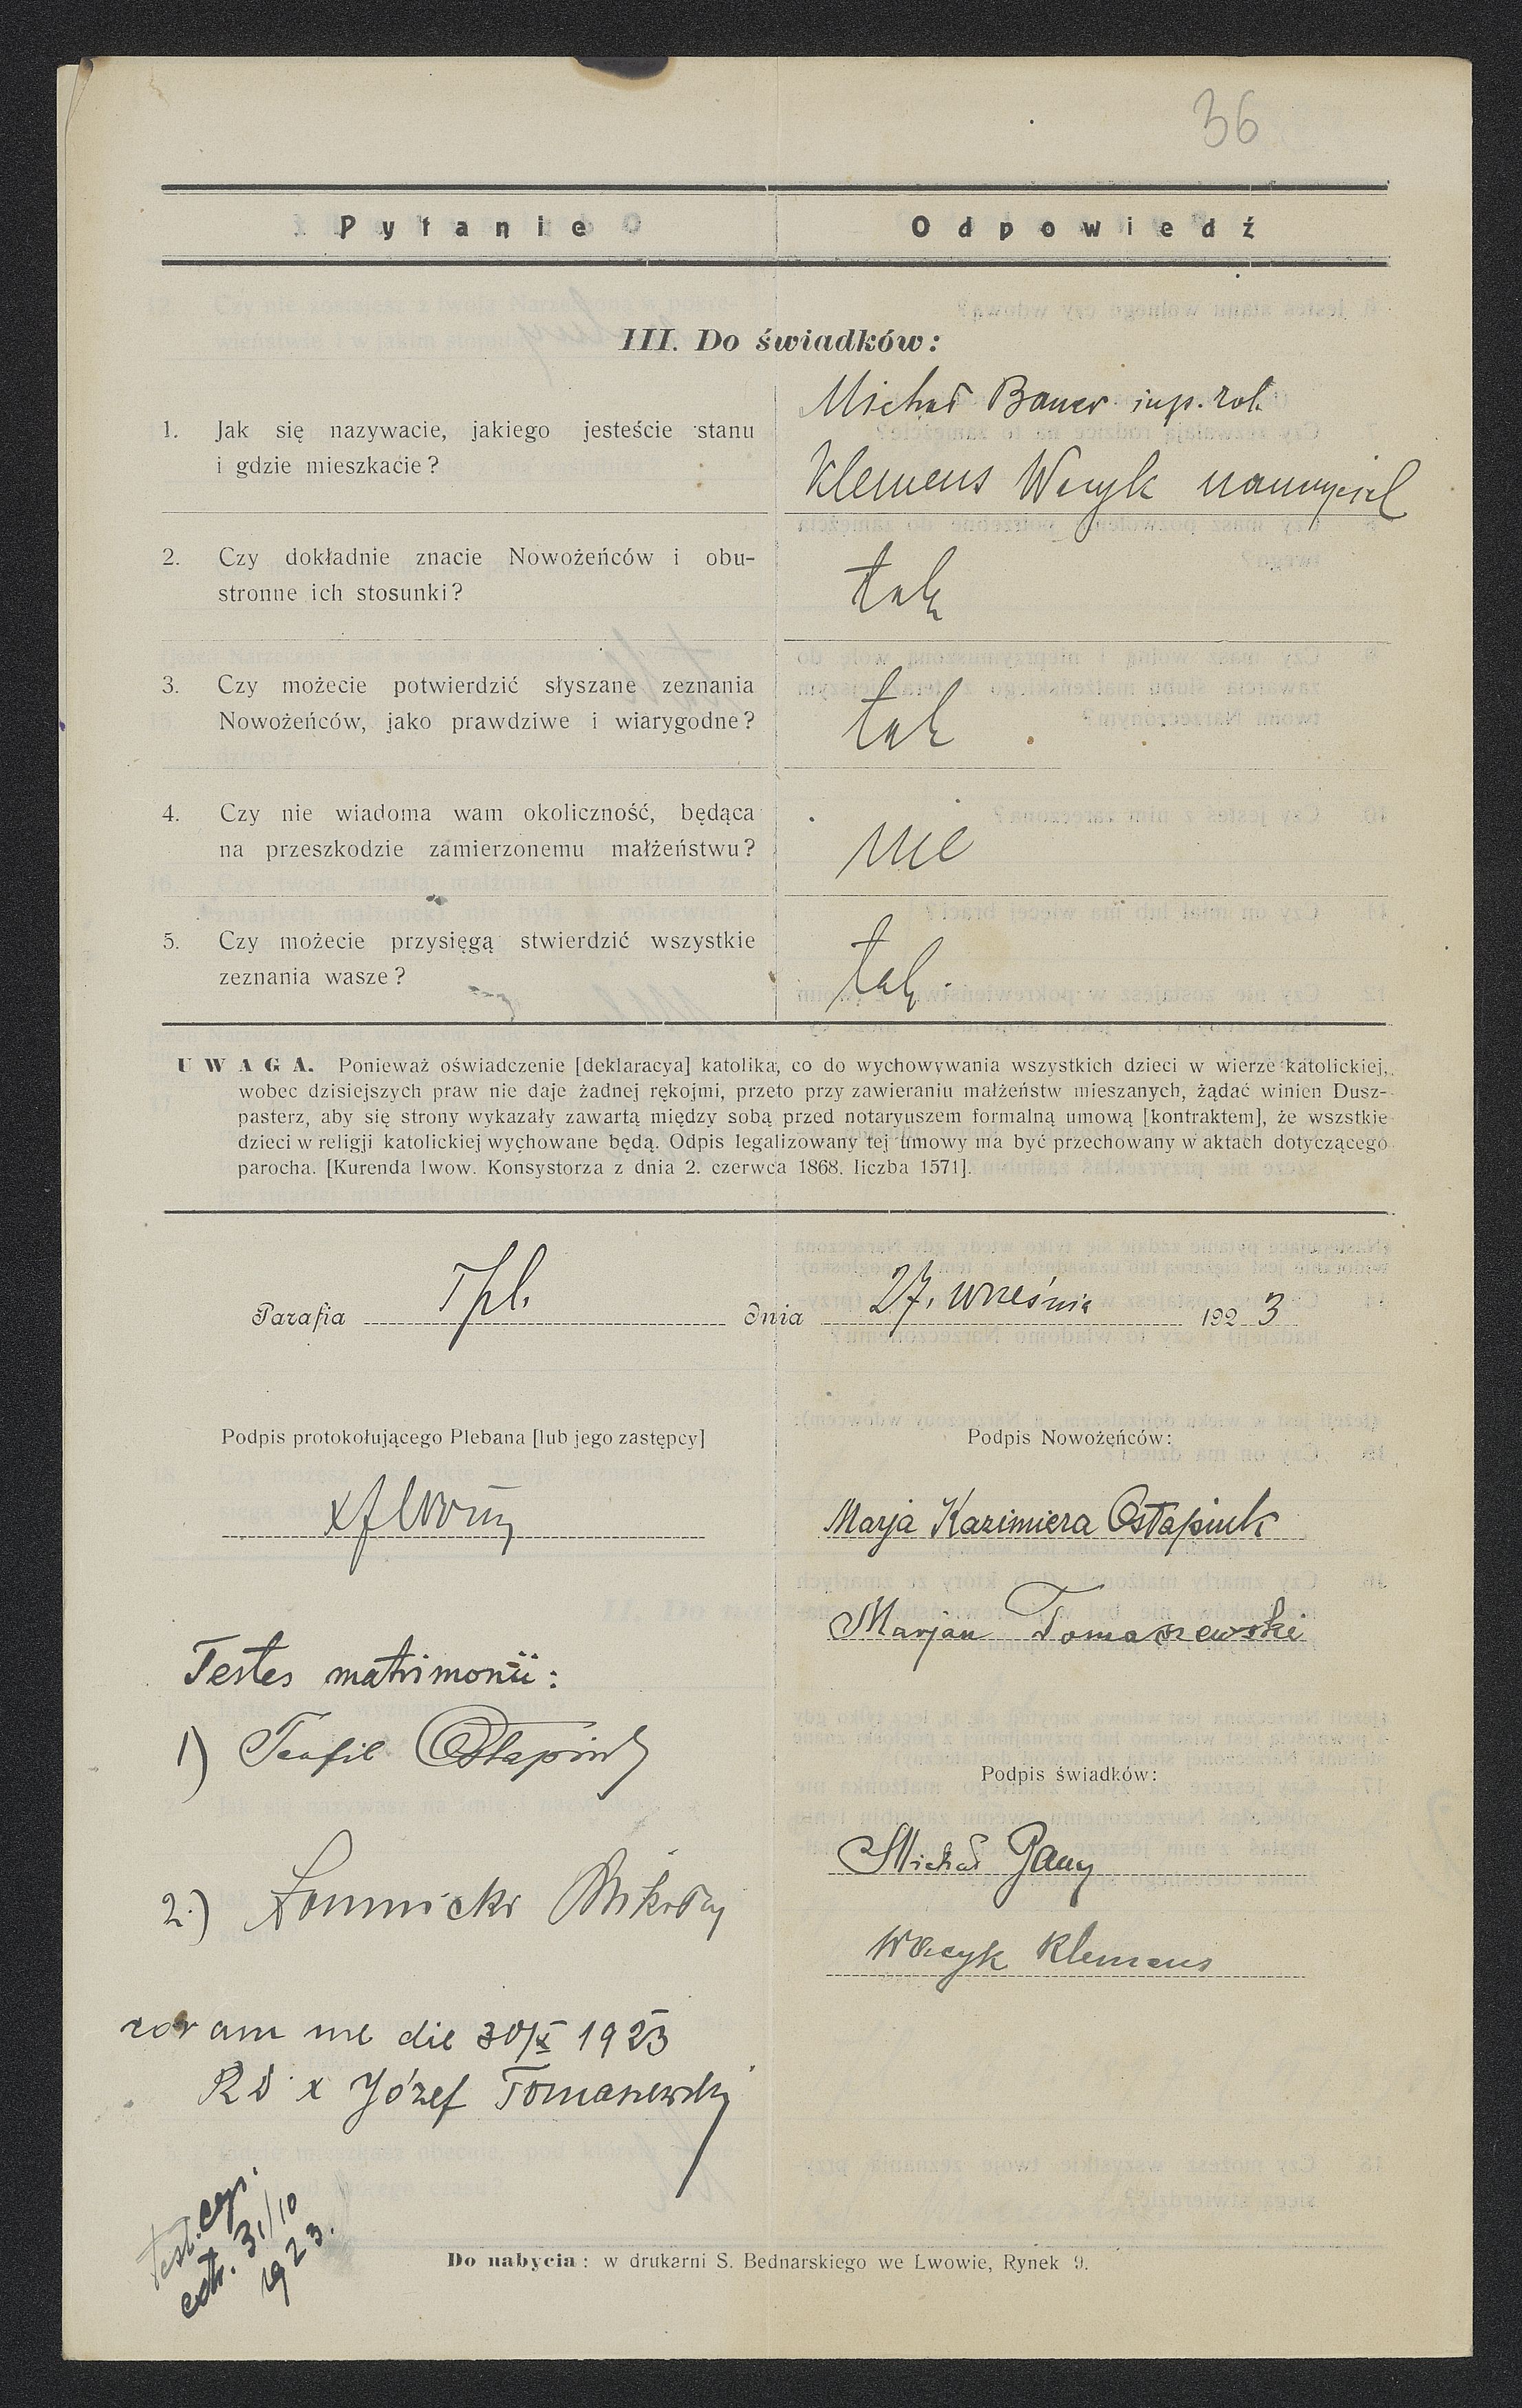 36
Pytanie Odpowiedź
III. Do świadków:
1. Jak się nazywacie, jakiego jesteście stanu
i gdzie mieszkacie?
Michał Bauer insp. rol.
Klemens Wecyk nauczyciel
2. Czy dokładnie znacie Nowożeńców i obu-
stronne ich stosunki?
tak
3. Czy możecie potwierdzić słyszane zeznania
Nowożeńców, jako prawdziwe i wiarygodne?
tak
4. Czy nie wiadoma wam okoliczność, będąca
na przeszkodzie zamierzonemu małżeństwu?
nie
5. Czy możecie przysięgą stwierdzić wszystkie
zeznania wasze?
tak.
UWAGA. Ponieważ oświadczenie [deklaracya] katolika, co do wychowywania wszystkich dzieci w wierze katolickiej,
wobec dzisiejszych praw nie daje żadnej rękojmi, przeto przy zawieraniu małżeństw mieszanych, żądać winien Dusz-
pasterz, aby się strony wykazały zawartą między sobą przed notaryuszem formalną umową [kontraktem], że wszstkie
dzieci w religji katolickiej wychowane będą. Odpis legalizowany tej umowy ma być przechowany w aktach dotyczącego
parocha. [Kurenda lwow. Konsystorza z dnia 2. czerwca 1868. liczba 1571].
Parafia Tpl. dnia 27. września 1923
Podpis protokołującego Plebana [lub jego zastępcy]
Podpis Nowożęńców:
Marja Kazimiera Ostapiuk
Marjan Tomaszewski
Testes matrimonii:
1) Teofil Ostapiuk
2.) Łomnicki Mikołaj
Podpis świadków:
Michał
Wecyk Klemens
coram me die 30/X 1923
RD x Józef Tomaszewski
test. cop.
extr. 31/10
1923.
Do nabycia: w drukarni S. Bednarskiego we Lwowie, Rynek 9.